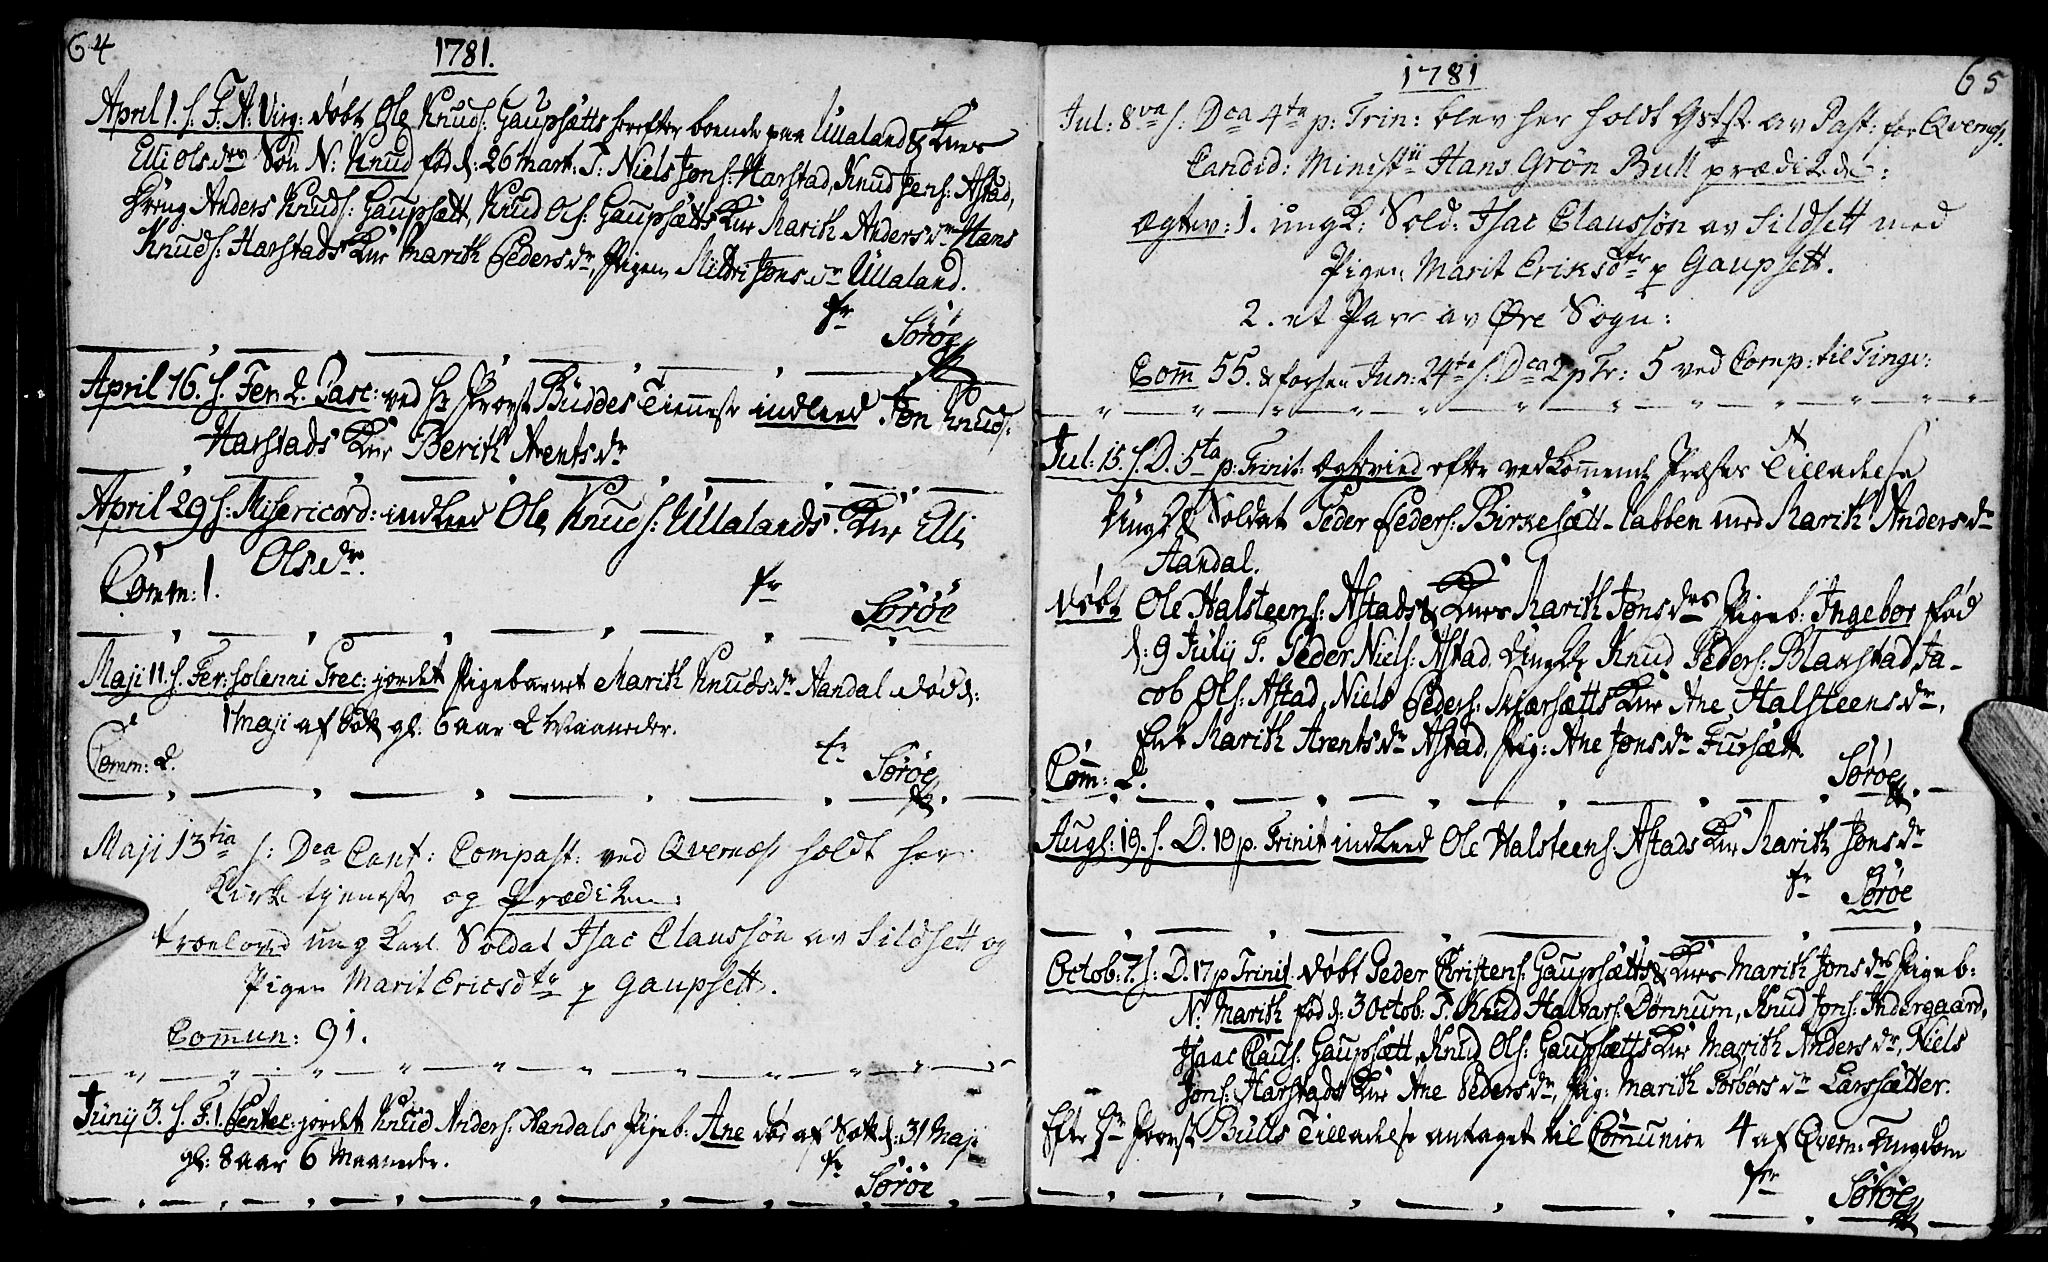 64
1781.
April 1. s. F. A. Virg: døbt Ole Knuds: Gaupsætts herefter boende paa Ullaland & Knes
Elli Olsdrs Søn N: Knud fød d: 26 Mart: T: Niels Jons: Harstad, Knud Jens: Astad,
Dreng Anders Knuds: Gaupsætt, Knud Ols: Gaupsætts Kne Marith Andersdr Hans
Knuds: Harstads Kne Marith Pedersdr, Pigen Mildri Jonsdr Ullaland.
fr
Sørøe
April 16. s. Fer: 2. Pasc: ved Hr Provst Büddes Tieneste indleed Jon Knuds:
Harstads Kne Berith Arentsdr
April 29 s: Misericord: indleed Ole Knuds: Ullalands Kne Elli
Olsdr.
Comm: 1.
fr
Sørøe
Maji 11. s. Fer: solenni Prec: jordet Pigebarnet Marith Knudsdr Aandal død d:
1 Maji af Sott gl. 6 aar 2 Maaneder.
Comm: 2.
fr
Sørøe
Maji 13tia s: Dca Cant: Compast: ved Qvernæs holdt her
Kirketjeneste og Prædiken:
Troelovd ungkarl Soldat Isac Claussøn av Sildsett og
Pigen Marit Ericsdtr p Gaupsett.
Commun: 91.
Junij 3. s. F. 1. Pentec: jordet Knud Anders: Aandals Pigeb: Ane død af Sott d: 31 Maji
gl: 8 aar 6 Maaneder.
fr
Sørøe
1781
65
Jul: 8va s: Dca 4ta p: Trin: blev her holdt Gstst av Past: for Qverns.
Candid: Minestii Hans Grön Bull prædikede:
Ægtev: 1. ungk: Sold: Isac Claussøn av Sildsett med
Pigen Marit Eriksdtr p Gaupsett.
2. et Par av Øre Sogn:
Com̄ 55. & forhen Jun: 24ta s: Dca 2 p Tr: 5 ved Comp: til Tingv:
Jul: 15. s. D. 5ta p: Trinit: Ægtevied efter vedkom̄ende Præses Tilladelse
Ungk Soldat Peder Peders: Birkesætt-labben med Marith Andersdr
Aandal.
Døbt Ole Halsteens: Astads & Knes Marith Jonsdrs Pigeb: Ingebor fød
d: 9 Julij T. Peder Niels: Astad, Ungk Knud Peders: Blakstad, Ja-
cob Ols: Astad, Niels Peders: Skiærsætts Kne Ane Halsteensdr,
Enk Marith Arentsdr Astad, Pig: Ane Jonsdr Fursætt.
Com̄: 2.
Sørøe
Augs: 19. s. D. 10 p. Trinit indleed Ole Halsteens: Astads Kne Marith Jonsdr
fr
Sørøe
Octob: 7. s: D. 17 p Trinit. døbt Peder Christens: Gaupsætts & Knes Marith Jonsdrs Pigeb:
N: Marith fød d: 3 Octob: T. Knud Halvars: Dønnum, Knud Jons: Indergaard,
Isaac Claus: Gaupsætt, Knud Ols: Gaupsætts Kne Marith Andersdr, Niels
Jons: Harstads Kne Ane Pedersdr, Pig: Marith Torborsdr Larssætter.
Efter Hr Provst Bulls Tilladelse antaget til Com̄union 4 af Qvern: Ungdom
fr
Sørøe